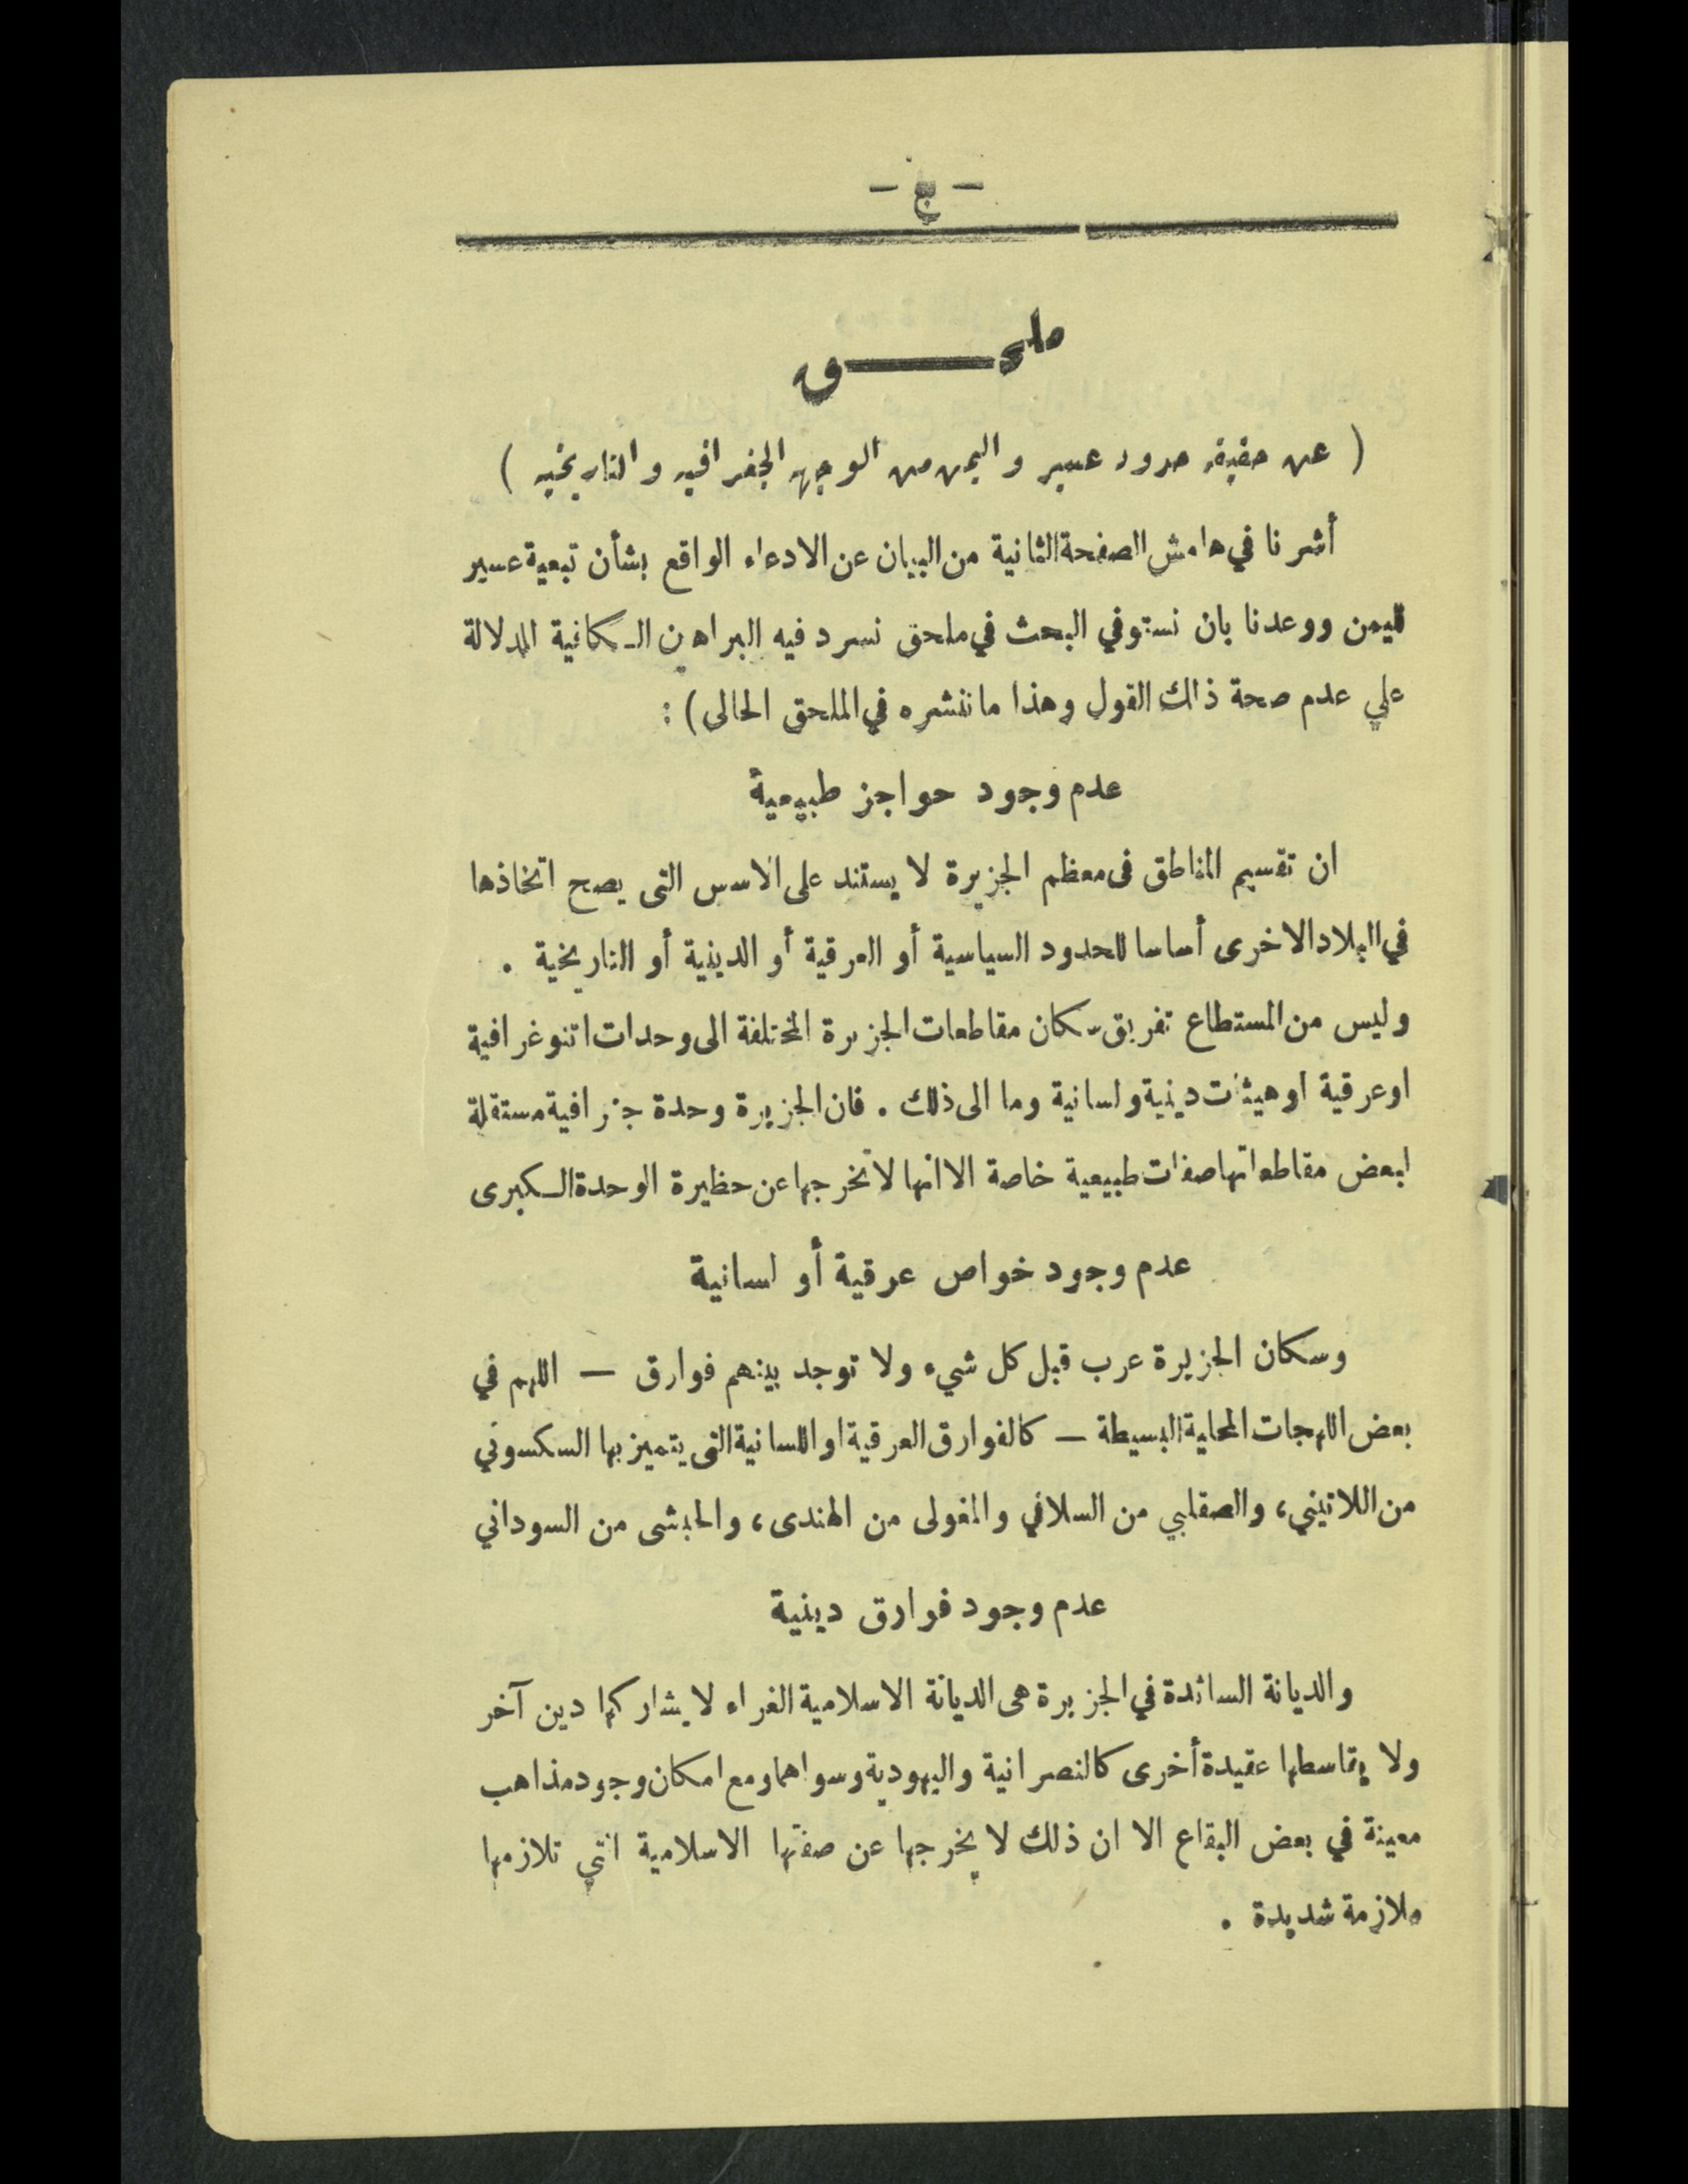 ملحــــق
( عن حقيقة حدود عسير واليمن من الوجهة الجغرافية والتاريخية )
أشرنا في هامش الصفحة الثانية من البيان عن الادعاء الواقع بشأن تبعية عسير
لليمن ووعدنا بان نستوفي البحث في ملحق نسرد فيه البراهين الـكافية للدلالة
على عدم صحة ذاك القول وهذا ما ننشره في الملحق الحالى ) :
عدم وجود حواجز طبيعية
ان تقسيم المناطق فى معظم الجزيرة لا يستند على الاسس التى يصح اتخاذها
في البلاد الاخرى أساسا للحدود السياسية أو العرقية أو الدينية أو التاريخية .
وليس من المستطاع تفريق سكان مقاطعات الجزيرة المختلفة الى وحدات اتنوغرافية
او عرقية او هيئات دينية ولسانية وما الى ذلك . فان الجزيرة وحدة جغرافية مستقلة
لبعض مقاطعاتها صفات طبيعية خاصة الا انها لا تخرجها عن حظيرة الوحدة الـكبرى
عدم وجود خواص عرقية أو لسانية
وسكان الجزيرة عرب قبل كل شيء ولا توجد بينهم فوارق — اللهم في
بعض اللهجات المحلية البسيطة — كالفوارق العرقية او اللسانية التى يتميز بها السكسوني
من اللاتيني، والصقلبي من السلافي والمغولى من الهندى، والحبشى من السوداني
عدم وجود فوارق دينية
والديانة السائدة في الجزيرة هى الديانة الاسلامية الغراء لا يشاركها دين آخر
ولا يقاسطها عقيدة أخرى كالنصرانية واليهودية وسواهما ومع امكان وجود مذاهب
معينة في بعض البقاع الا ان ذلك لا يخرجها عن صفتها الاسلامية التي تلازمها
ملازمة شديدة .